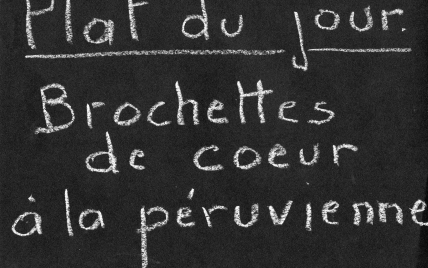 Plat du jour.
Brochettes
de coeur
à la péruvienne